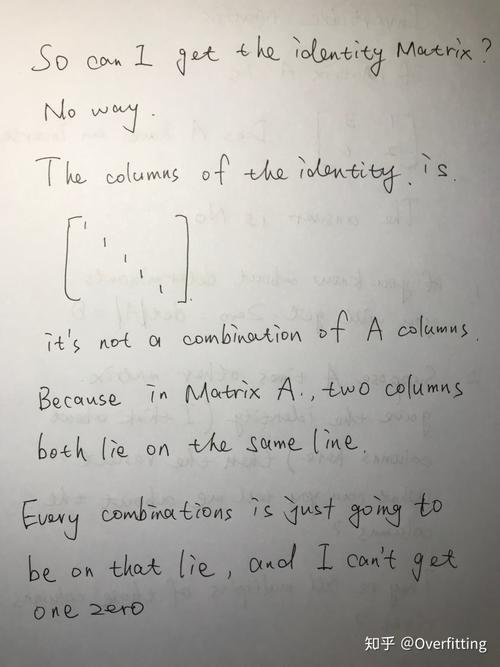 So can I get the identity Matrix?
No way.
The columns of the identity. is.
[1 1 1 1 1].
it's not a combination of A columns.
Because in Matrix A., two columns
both lie on the same line.
Every combinations is just going to
be on that lie, and I can't get
one zero
知乎 @Overfitting